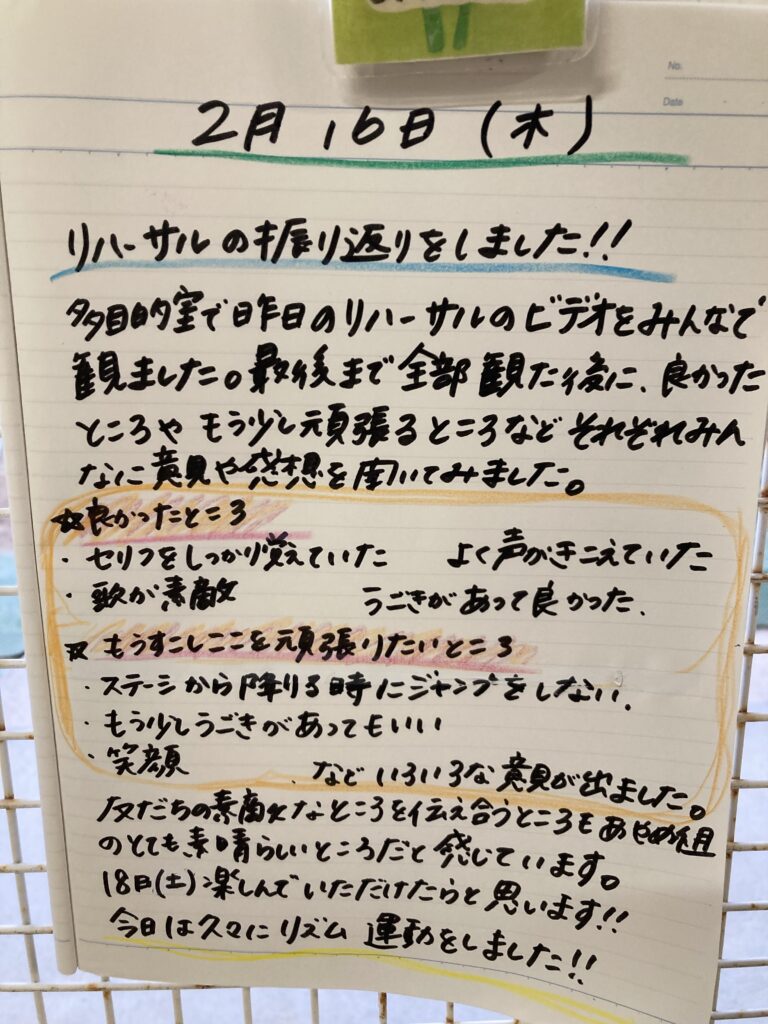 No.
Date
2月16日(木)
リハーサルの振り返りをしました!!
多目的室で昨日のリハーサルのビデオをみんなで
観ました。最後まで全部観た後に、良かった
ところや もう少し頑張るところなど それぞれみん
なに意見や感想を聞いてみました。
☆良かったところ
・セリフをしっかり覚えていた よく声がきこえていた
・歌が素敵 うごきがあって良かった、
☆ もうすこしここを頑張りたいところ
・ステージから降りる時にジャンプをしない、
・もう少しうごきがあってもいい
・笑顔 、など いろいろな意見が出ました。
友だちの素敵なところを伝え合うところもあやめ組
のとても素晴らしいところだと感じています。
18日(土)楽しんでいただけたらと思います!!
今日は久々にリズム運動をしました!!